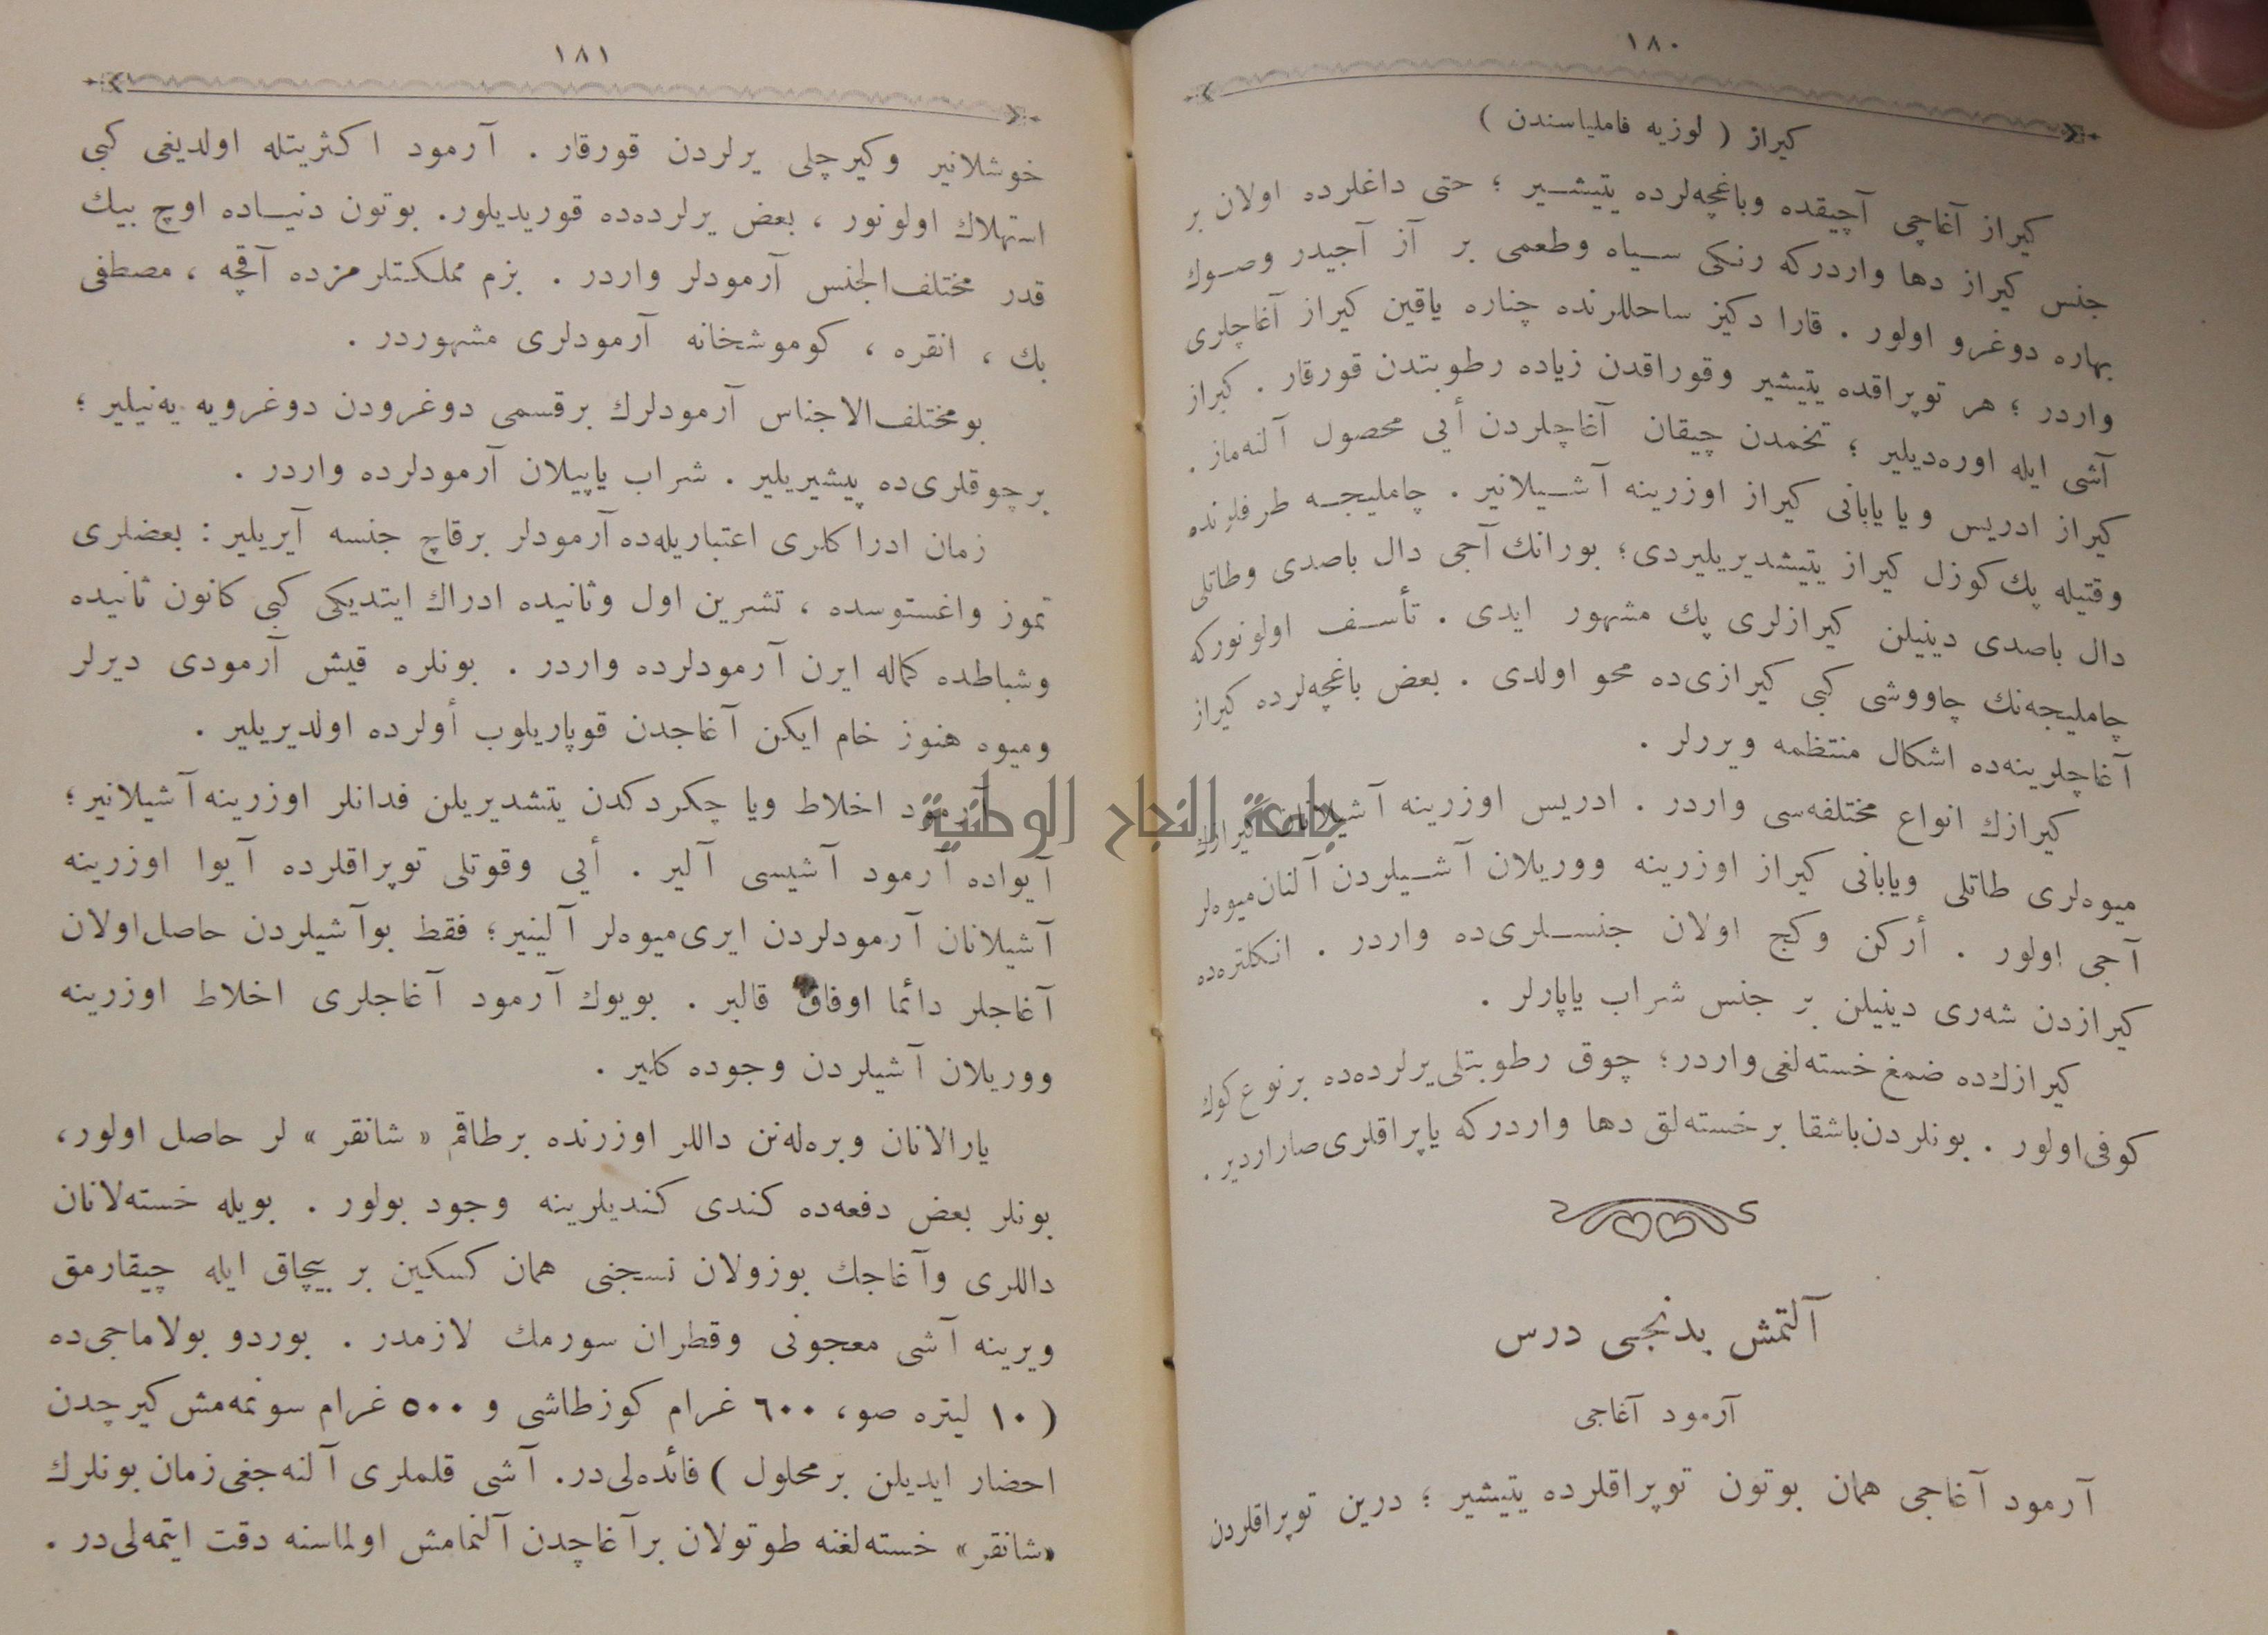 ١٨٠
كيراز ( لوزيه فاملياسندن )
كيراز آغاچى آچيقده وباغچه‌لرده يتيشير ؛ حتى داغلرده اولان بر
جنس كيراز دها واردركه رنكى سياه وطعمى بر آز آجيدر وصوك
بهاره دوغرو اولور . قارا دكيز ساحللرنده چناره ياقين كيراز آغاچلرى
واردر ؛ هر توپراقده يتيشير وقوراقدن زياده رطوبتدن قورقار . كيراز
آشى ايله اوره‌ديلير ؛ تخمدن چيقان آغاچلردن أيى محصول آلنه‌ماز .
كيراز ادريس ويا يابانى كيراز اوزرينه آشيلانير . چامليجه طرفلرنده
وقتيله پك كوزل كيراز يتيشديريليردى؛ بورانك آجى دال باصدى وطاتلى
دال باصدى دينيلن كيرازلرى پك مشهور ايدى . تأسف اولونوركه
چامليجه‌نك چاووشى كبى كيرازى‌ده محو اولدى . بعض باغچه‌لرده كيراز
آغاچلرينه‌ده اشكال منتظمه ويررلر .
كيرازك انواع مختلفه‌سى واردر . ادريس اوزرينه آشيلانان كيرازك
ميوه‌لرى طاتلى ويابانى كيراز اوزرينه ووريلان آشيلردن آلنان ميوه‌لر
آجى اولور . أركن وكج اولان جنسلرى‌ده واردر . انكلتره‌ده
كيرازدن شه‌رى دينيلن بر جنس شراب ياپارلر .
كيرازك‌ده ضمغ خسته‌لغى واردر؛ چوق رطوبتلى يرلرده‌ده برنوع كوك
كوفى اولور . بونلردن باشقا بر خسته‌لق دها واردركه ياپراقلرى صاراردير .
آلتمش يدنجى درس
آرمود آغاجى
آرمود آغاجى همان بوتون توپراقلرده يتيشير ؛ درين توپراقلردن
١٨١
خوشلانير وكيرچلى يرلردن قورقار . آرمود اكثريتله اولديغى كبى
استهلاك اولونور ، بعض يرلرده‌ده قوريديلور. بوتون دنياده اوچ بيك
قدر مختلف‌الجنس آرمودلر واردر . بزم مملكتلرمزده آقچه ، مصطفى
بك ، انقره ، كوموشخانه آرمودلرى مشهوردر .
بومختلف‌الاجناس آرمودلرك برقسمى دوغرودن دوغرويه يه‌نيلير ؛
برچوقلرى‌ده پيشيريلير . شراب ياپيلان آرمودلرده واردر .
زمان ادراكلرى اعتباريله‌ده آرمودلر برقاچ جنسه آيريلير : بعضلرى
تموز واغستوسده ، تشرين اول وثانيده ادراك ايتديكى كبى كانون ثانيده
وشباطده كماله ايرن آرمودلرده واردر . بونلره قيش آرمودى ديرلر
وميوه هنوز خام ايكن آغاجدن قوپاريلوب أولرده اولديريلير .
آرمود اخلاط ويا چكردكدن يتشديريلن فدانلر اوزرينه آشيلانير ؛
آيواده آرمود آشيسى آلير . أيى وقوتلى توپراقلرده آيوا اوزرينه
آشيلانان آرمودلردن ايرى ميوه‌لر آلينير؛ فقط بوآشيلردن حاصل اولان
آغاجلر دائما اوفاق قالير . بويوك آرمود آغاجلرى اخلاط اوزرينه
ووريلان آشيلردن وجوده كلير .
يارالانان وبره‌له‌نن داللر اوزرنده برطاقم « شانقر » لر حاصل اولور،
بونلر بعض دفعه‌ده كندى كنديلرينه وجود بولور . بويله خسته‌لانان
داللرى وآغاجك بوزولان نسجنى همان كسكين بر بيچاق ايله چيقارمق
ويرينه آشى معجونى وقطران سورمك لازمدر . بوردو بولاماجى‌ده
( ١٠ ليتره صو، ٦٠٠ غرام كوزطاشى و ٥٠٠ غرام سونمه‌مش كيرچدن
احضار ايديلن بر محلول ) فائده‌لى‌در. آشى قلملرى آلنه‌جغى زمان بونلرك
«شانقر» خسته‌لغنه طوتولان برآغاچدن آلنمامش اولماسنه دقت ايتمه‌لى‌در .
جامعة النجاح الوطنية